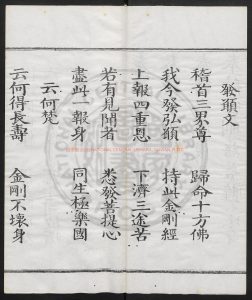 發願文
稽首三界尊　歸命十方佛
我今發弘願　持此金剛經
上報四重恩　下濟三途苦
若有見聞者　悉發菩提心
盡此一報身　同生極樂國
云何梵
云何得長壽　金剛不壞身